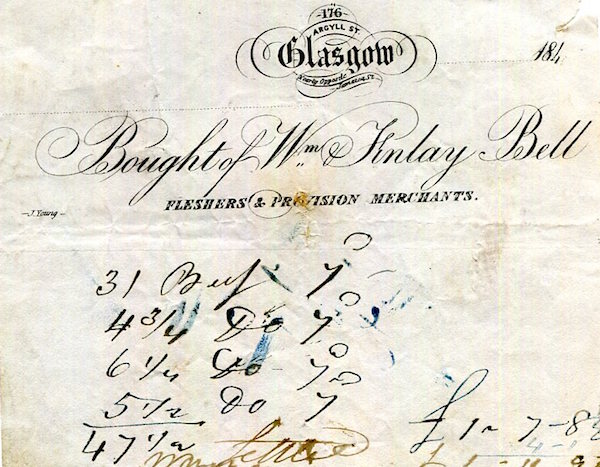 176
ARGYLL ST.
Glasgow
Nearly Opposite
Jamaica St.
184
Bought of Wm & Finlay Bell
FLESHERS & PROVISION MERCHANTS.
J. Young
31 Beef 7
4 3/4 Do 7
6 1/4 Do 7
5 1/2 Do 7
47 1/2
£ 1 " 7 - 8
4 - 0